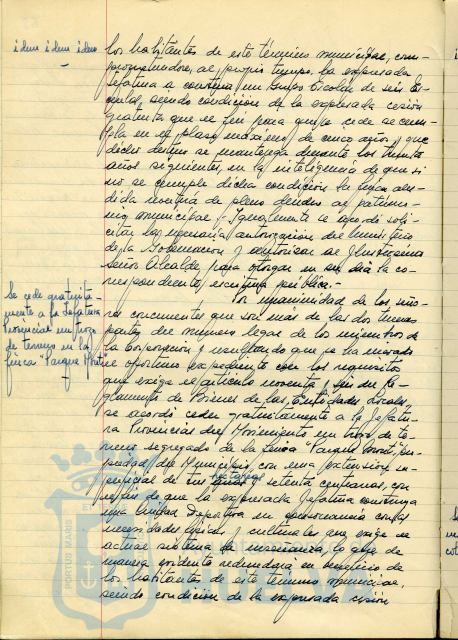 idem idem idem
los habitantes de este término municipal, com-
prometiendose, al propio tiempo, la expresada
Jefatura a construir un Grupo Escolar de seis
siendo condición de la expresada cesión
gratuita que el fin para que se cede se cum-
pla en el plazo máximo de cinco años y que
dicho destino se mantenga durante los treinta
años siguientes, en la inteligencia de que si
no se cumple dicha condición la finca ce-
dida revertirá de pleno derecho al patrimo-
nio municipal. Igualmente se acordó soli-
citar la necesaria autorización del Ministerio
de la Gobernación y autorizar al Ilustrísimo
Señor Alcalde para otorgar en su día la co-
rrespondiente escritura pública.-
Se cede gratuita-
mente a la Jefatura
Provincial un trozo
de terreno en la
finca "Parque Moret"
Por unanimidad de los seño-
res concurrentes que son más de las dos terceras
partes del número legal de los miembros de
la Corporación y resultando que se ha instruido
el oportuno expediente con los requisitos
que exige el artículo noventa y seis del Re-
glamento de Bienes de las Entidades Locales,
se acordó ceder gratuitamente a la Jefatu-
ra Provincial del Movimiento un trozo de te-
rreno segregado de la finca "Parque Moret", pro-
piedad del Municipio, con una extensión su-
perficial de tres y setenta centiareas, con
el fin de que la expresada Jefatura construya
una Unidad Deportiva en consonancia con las
necesidades físicas y culturales que exige el
actual sistema de enseñanza, lo que de
manera evidente redundará en beneficio de
los habitantes de este término municipal,
siendo condición de la expresada cesión
PORTUS MARIS ET